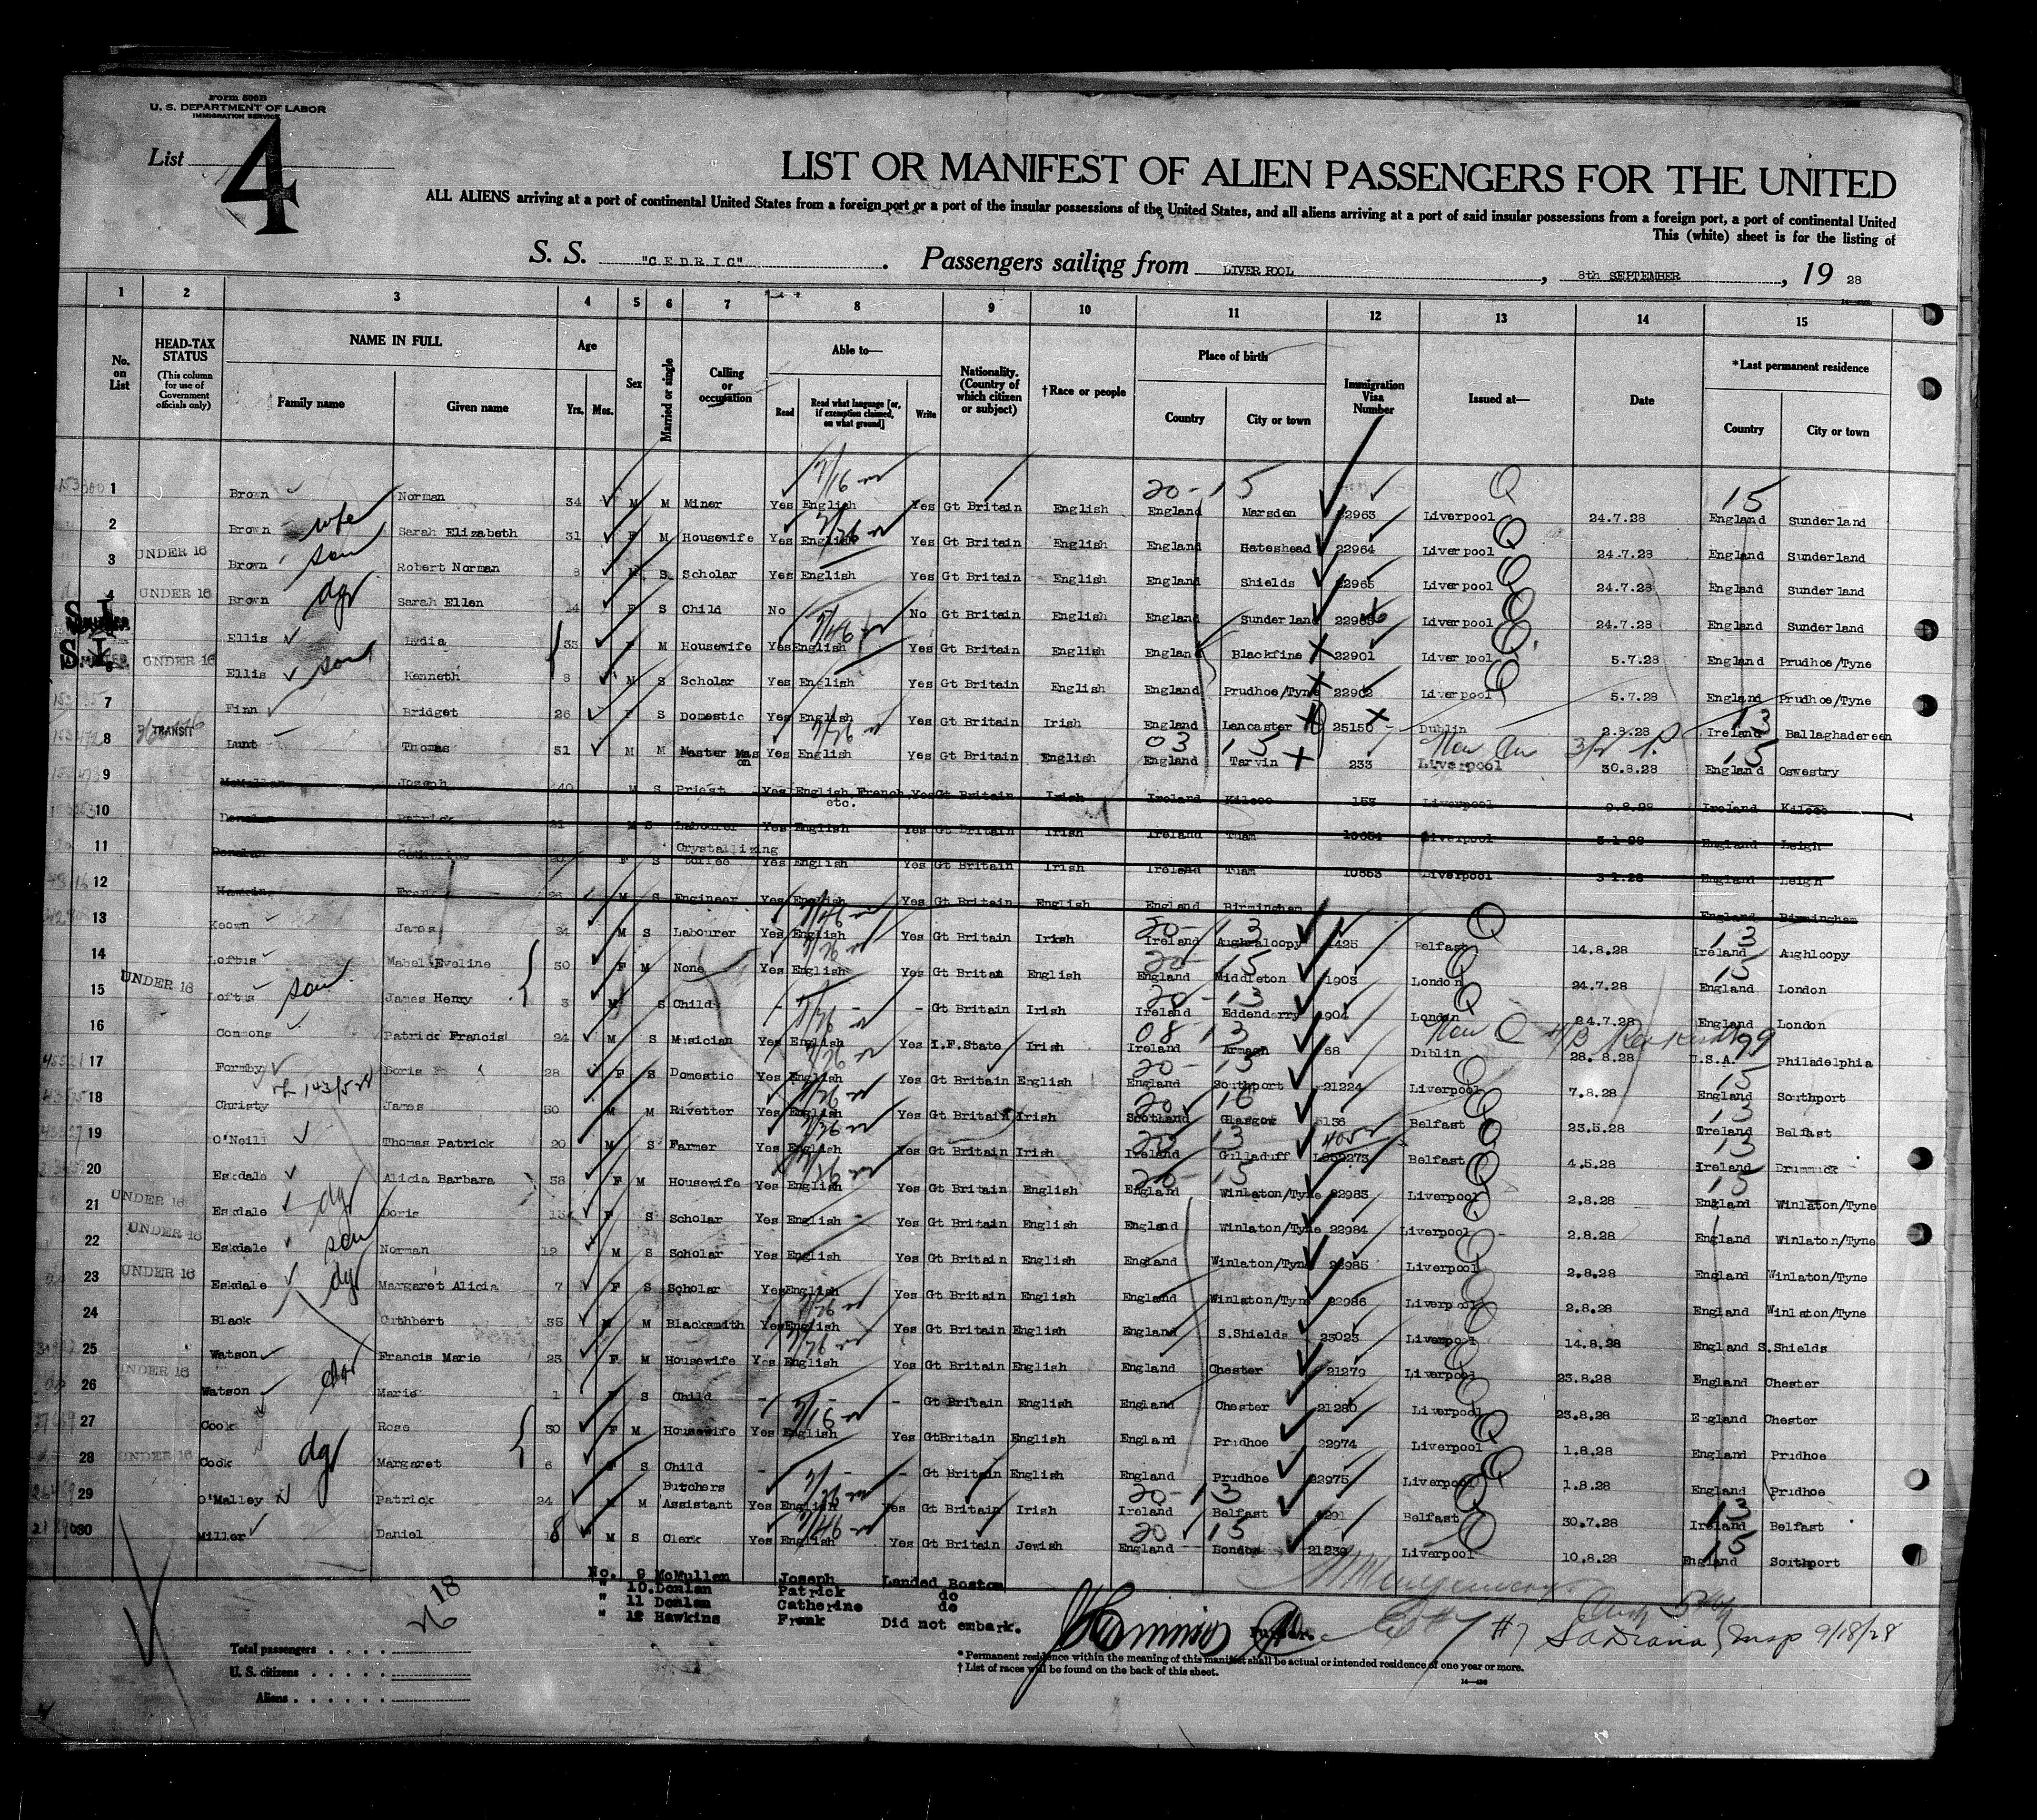 Form 500B
U. S. DEPARTMENT OF LABOR
IMMIGRATION SERVICE
List 4
LIST OR MANIFEST OF ALIEN PASSENGERS FOR THE UNITED
ALL ALIENS arriving at a port of continental United States from a foreign port or a port of the insular possessions of the United States, and all aliens arriving at a port of said insular possessions from a foreign port, a port of continental United
This (white) sheet is for the listing of
S. S. "CEDRIC". Passengers sailing from LIVERPOOL, 8th SEPTEMBER, 19 28
1 2 3 4 5 6 7 8 9 10 11 12 13 14 15
No. on List HEAD-TAX STATUS (This column for use of Government officials only) NAME IN FULL Family name Given name Age Yrs. Mos. Sex Married or single Calling or occupation Able to— Read Read what language [or, if exemption claimed, on what ground] Write Nationality. (Country of which citizen or subject) †Race or people Place of birth Country City or town Immigration Visa Number Issued at— Date *Last permanent residence Country City or town
1 Brown Norman 34 M M Miner Yes English Yes Gt Britain English England Marsden 22963 Liverpool 24.7.28 England Sunderland
2 Brown wife Sarah Elizabeth 31 F M Housewife Yes English Yes Gt Britain English England Gateshead 22964 Liverpool 24.7.28 England Sunderland
3 UNDER 16 Brown son Robert Norman 8 M S Scholar Yes English Yes Gt Britain English England Shields 22965 Liverpool 24.7.28 England Sunderland
4 UNDER 16 Brown dgr Sarah Ellen 14 F S Child No No Gt Britain English England Sunderland Liverpool 24.7.28 England Sunderland
S.I. Ellis Lydia 33 F M Housewife Yes English Yes Gt Britain English England Blackfine 22901 Liverpool 5.7.28 England Prudhoe/Tyne
S.I. 6 UNDER 16 Ellis son Kenneth 8 M S Scholar Yes English Yes Gt Britain English England Prudhoe/Tyne 22902 Liverpool 5.7.28 England Prudhoe/Tyne
7 Finn Bridget 26 F S Domestic Yes English Yes Gt Britain Irish England Lancaster 25156 Dublin 2.8.28 Ireland Ballaghadereen
8 TRANSIT Lunt Thomas 51 M M Master Mason Yes English Yes Gt Britain English England Tarvin 233 Liverpool 30.8.28 England Oswestry
9 McMullan Joseph 40 M S Priest Yes English, French etc. Yes Gt Britain Irish Ireland Kilcoo 153 Liverpool 9.8.28 Ireland Kilcoo
10 Donlan Patrick 21 M S Labourer Yes English Yes Gt Britain Irish Ireland Tuam 10654 Liverpool 3.1.28 England Leigh
11 Donlan Catherine 20 F S Crystallizing toffee Yes English Yes Gt Britain Irish Ireland Tuam 10653 Liverpool 3.1.28 England Leigh
12 Hawkins Frank 26 M S Engineer Yes English Yes Gt Britain English England Birmingham England Birmingham
13 Keown James 24 M S Labourer Yes English Yes Gt Britain Irish Ireland Aughraloopy 1425 Belfast 14.8.28 Ireland Aughloopy
14 Loftus Mabel Eveline 30 F M None Yes English Yes Gt Britan English England Middleton 1903 London 24.7.28 England London
15 UNDER 16 Loftus son James Henry 3 M S Child - - - Gt Britain Irish Ireland Eddenderry 904 London 24.7.28 England London
16 Commons Patrick Francis 24 M S Musician Yes English Yes I.F.State Irish Ireland Armagh 68 Dublin 28.8.28 U.S.A. Philadelphia
17 Formby Doris 28 F S Domestic Yes English Yes Gt Britain English England Southport 21224 Liverpool 7.8.28 England Southport
18 Christy James 50 M M Rivetter Yes English Yes Gt Britain Irish Scotland Glasgow 5136 Belfast 23.5.28 Ireland Belfast
19 O'Neill Thomas Patrick 20 M S Farmer Yes English Yes Gt Britain Irish Ireland Gilladuff Belfast 4.5.28 Ireland Drummuck
20 Eskdale Alicia Barbara 38 F M Housewife Yes English Yes Gt Britain English England Winlaton/Tyne 22983 Liverpool 2.8.28 England Winlaton/Tyne
21 UNDER 16 Eskdale dgr Doris 13 F S Scholar Yes English Yes Gt Britain English England Winlaton/Tyne 22984 Liverpool 2.8.28 England Winlaton/Tyne
22 UNDER 16 Eskdale son Norman 12 M S Scholar Yes English Yes Gt Britain English England Winlaton/Tyne 22985 Liverpool 2.8.28 England Winlaton/Tyne
23 UNDER 16 Eskdale dgr Margaret Alicia 7 F S Scholar Yes English Yes Gt Britain English England Winlaton/Tyne 22986 Liverpool 2.8.28 England Winlaton/Tyne
24 Black Cuthbert 35 M M Blacksmith Yes English Yes Gt Britain English England S.Shields 23023 Liverpool 14.8.28 England S.Shields
25 Watson Francis Marie 23 F M Housewife Yes English Yes Gt Britain English England Chester 21279 Liverpool 23.8.28 England Chester
26 UNDER 16 Watson dgr Marie 1 F S Child - - - Gt Britain English England Chester 21280 Liverpool 23.8.28 England Chester
27 Cook Rose 30 F M Housewife Yes English Yes GtBritain English England Prudhoe 22974 Liverpool 1.8.28 England Prudhoe
28 UNDER 16 Cook dgr Margaret 6 F S Child - - - Gt Britain English England Prudhoe 22975 Liverpool 1.8.28 England Prudhoe
29 O'Malley Patrick 24 M M Butchers Assistant Yes English Yes Gt Britain Irish Ireland Belfast 4291 Belfast 30.7.28 Ireland Belfast
30 Miller Daniel 18 M S Clerk Yes English Yes Gt Britain Jewish England London 21239 Liverpool 10.8.28 England Southport
No. 9 McMullan Joseph Landed Boston
" 10. Donlan Patrick do
" 11 Donlan Catherine do
" 12 Hawkins Frank Did not embark.
Purser.
#7 Insp 9/18/28
Total passengers . . . .
U. S. citizens . . . . .
Aliens . . . . . .
* Permanent residence within the meaning of this manifest shall be actual or intended residence of one year or more.
† List of races will be found on the back of this sheet.